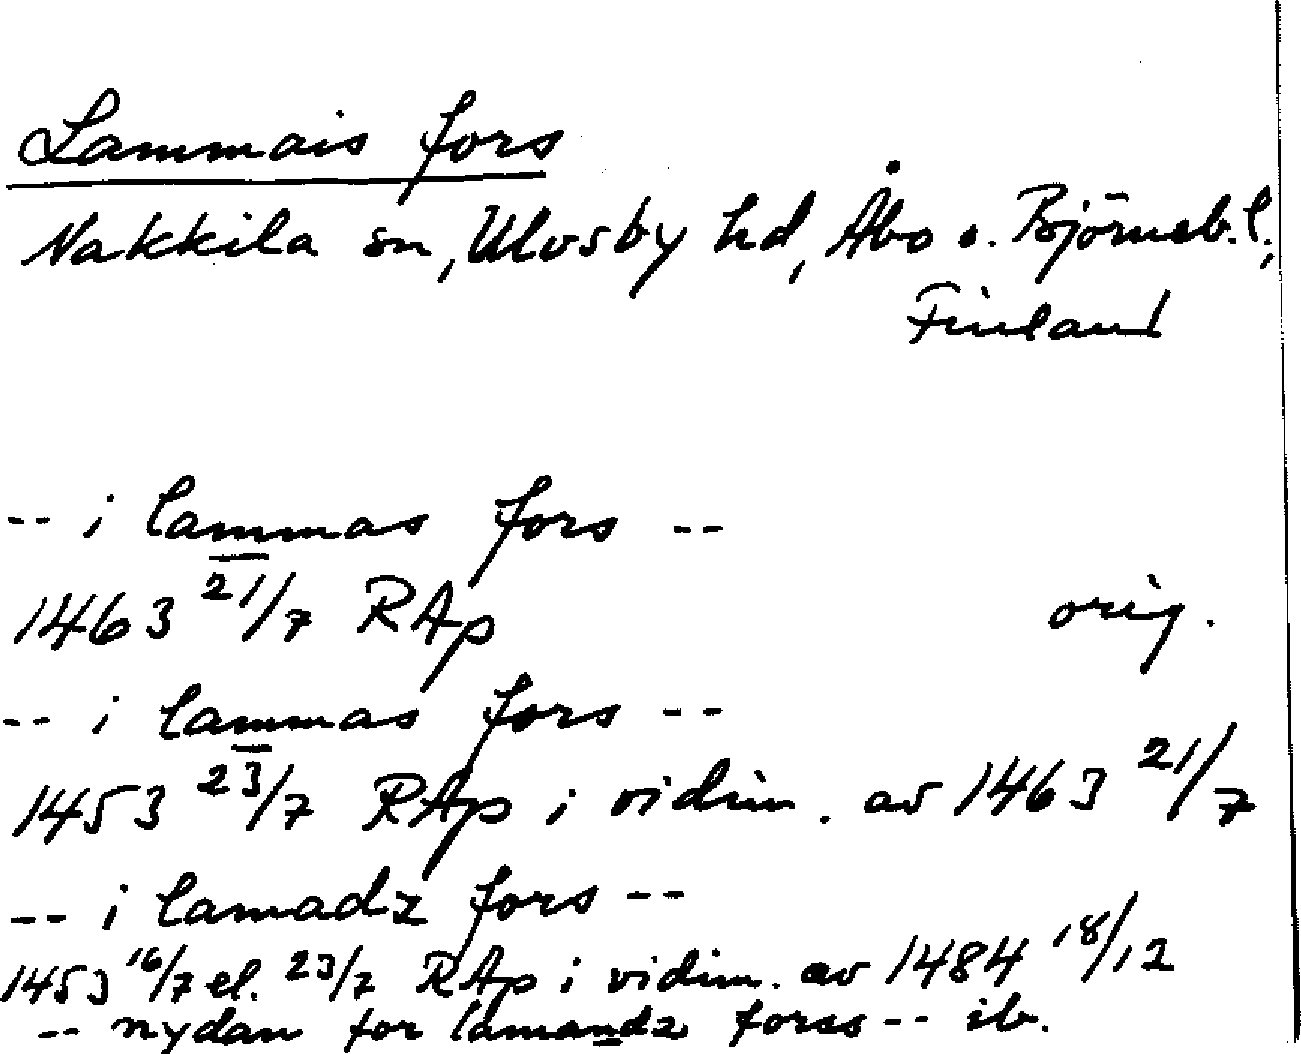 Lammais fors
Nakkila sn, Ulvsby hd, Åbo o. Björneb. l.,
Finland
-- i lammas fors --
1463 21/7 RAp orig.
-- i lammas fors --
1453 23/7 RAp i vidim. av 1463 21/7
-- i lamadz fors --
1453 16/7 el. 23/7 RAp i vidim. av 1484 18/12
-- nydan for lamandz forss -- ib.